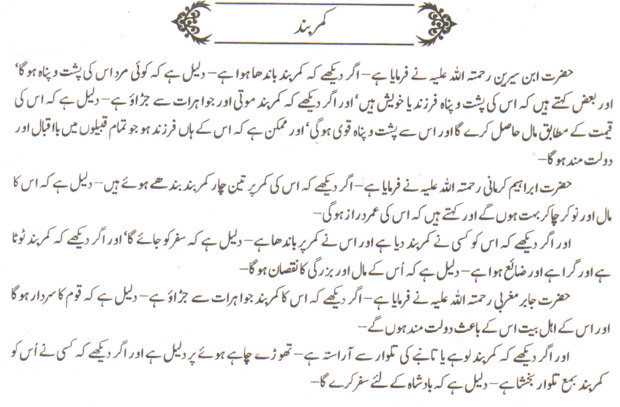 کمربند
حضرت ابن سیرین رحمتہ اللہ علیہ نے فرمایا ہے – اگر دیکھے کہ کمربند باندھا ہوا ہے – دلیل ہے کہ کوئی مرد اس کی پشت و پناہ ہو گا‘
اور بعض کہتے ہیں کہ اس کی پشت و پناہ فرزند یا خویش ہیں‘ اور اگر دیکھے کہ کمربند موتی اور جواہرات سے جڑاؤ ہے – دلیل ہے کہ اس کی
قیمت کے مطابق مال حاصل کرے گا اور اس سے پشت و پناہ قوی ہو گی‘ اور ممکن ہے کہ اس کے ہاں فرزند ہو جو تمام قبیلوں میں با اقبال اور
دولت مند ہو گا –
حضرت ابراہیم کرمانی رحمتہ اللہ علیہ نے فرمایا ہے – اگر دیکھے کہ اس کی کمر پر تین چار کمربند بندھے ہوئے ہیں – دلیل ہے کہ اس کا
مال اور نوکر چاکر بہت ہوں گے اور کہتے ہیں کہ اس کی عمر دراز ہو گی –
اور اگر دیکھے کہ اس کو کسی نے کمربند دیا ہے اور اس نے کمر پر باندھا ہے – دلیل ہے کہ سفر کو جائے گا‘ اور اگر دیکھے کہ کمربند ٹوٹا
ہے اور گرا ہے اور ضائع ہوا ہے – دلیل ہے کہ اُس کے مال اور بزرگی کا نقصان ہو گا –
حضرت جابر مغربی رحمتہ اللہ علیہ نے فرمایا ہے – اگر دیکھے کہ اس کا کمربند جواہرات سے جڑاؤ ہے – دلیل ہے کہ قوم کا سردار ہو گا
اور اس کے اہل بیت اس کے باعث دولت مند ہوں گے –
اور اگر دیکھے کہ کمربند لوہے یا تانبے کی تلوار سے آراستہ ہے – تھوڑے چاہے ہوئے پر دلیل ہے اور اگر دیکھے کہ کسی نے اُس کو
کمربند بمع تلوار بخشا ہے – دلیل ہے کہ بادشاہ کے لئے سفر کرے گا –